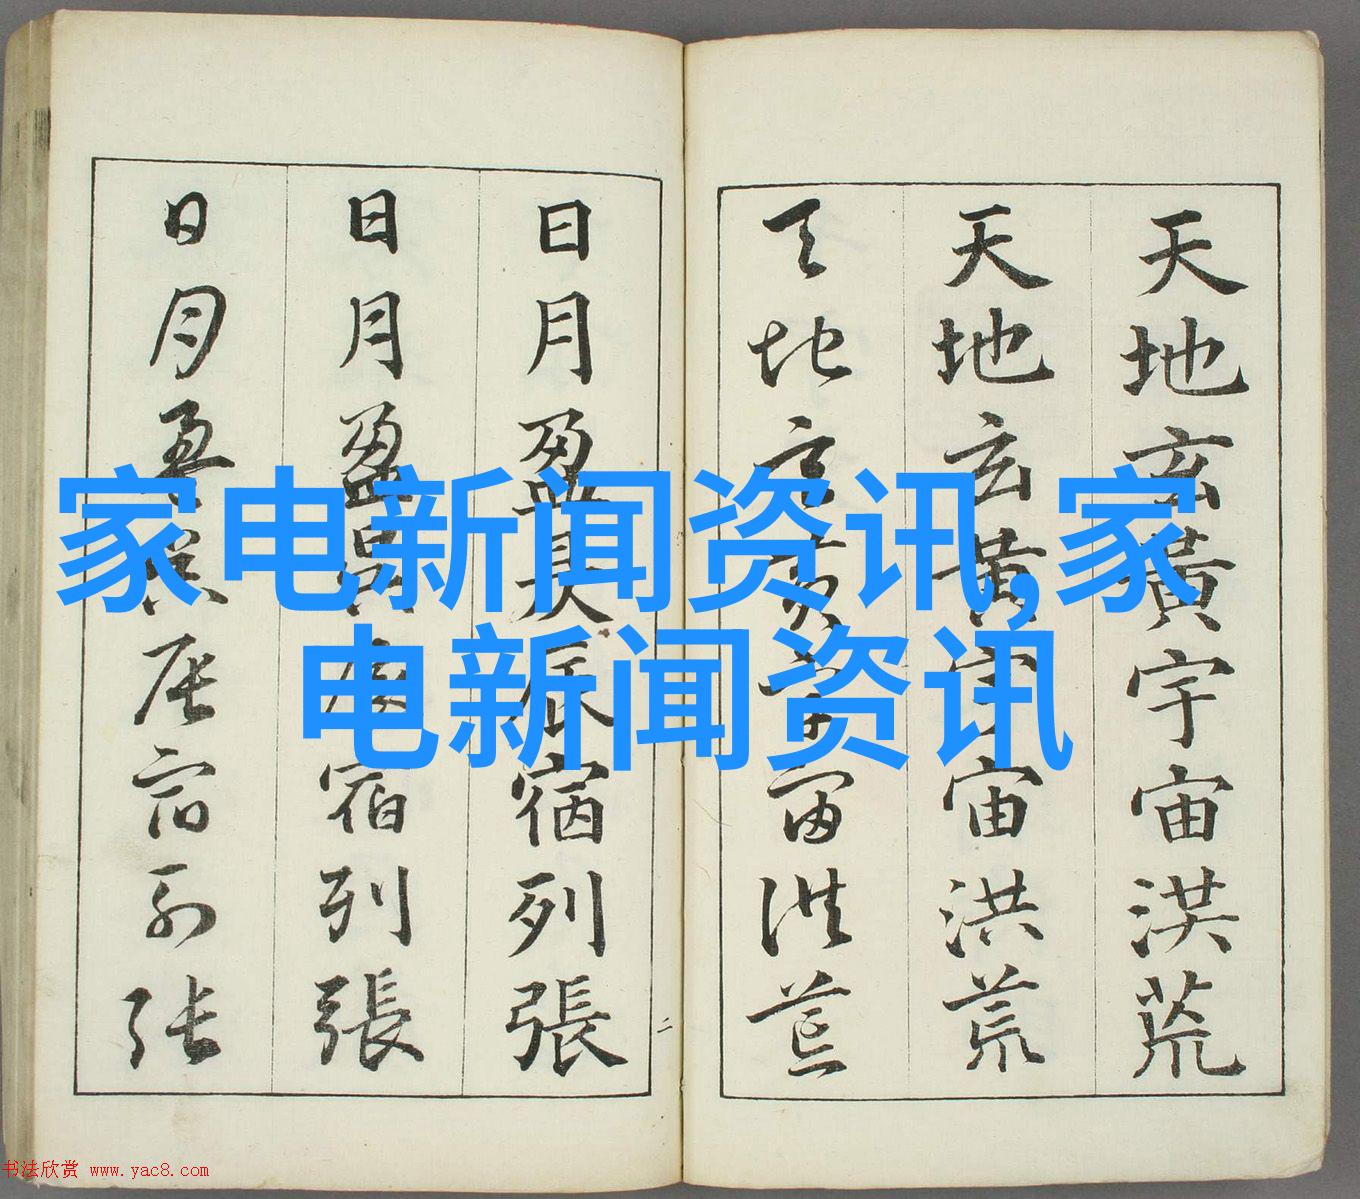 天地玄黃宇宙洪荒
天地玄黃宇宙洪荒
天地玄黃宇宙洪荒
日月盈昃辰宿列張
日月盈昃辰宿列張
日月盈昃辰宿列張
二
家电新闻资讯,家
电新闻资讯
书法欣赏 www.yac8.com